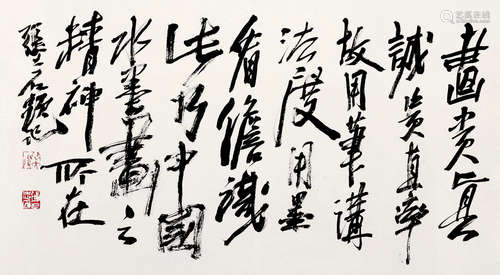 畫貴真
誠貴真率
故用筆講
法度用墨
看膽識
此乃中國
水墨畫之
精神所在